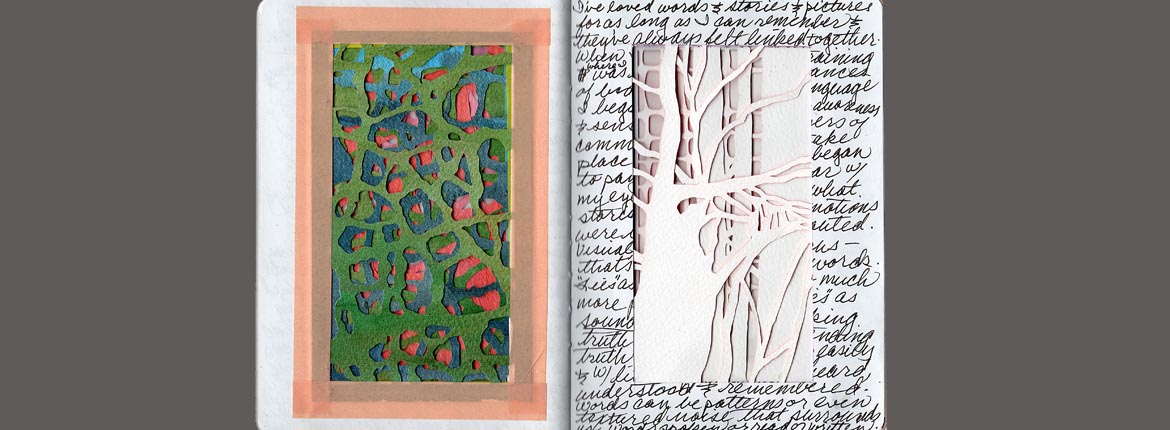 I've loved words & stories & pictures
for as long as I can remember &
they've always felt linked together.
When, aining
where
it was ances
of bo nguage
I bega awareness
& sens ers of
comm ake
place began
to pay ar w/
my ey what.
stories motions
were outed.
Visual us—
that's words.
"lies" as much
more ies" as
sound king.
truth ending
truth easily
& w/ li heard,
understood & remembered.
Words can be patterns or even
textured noise that surrounds
us. Words spoken or read or written.